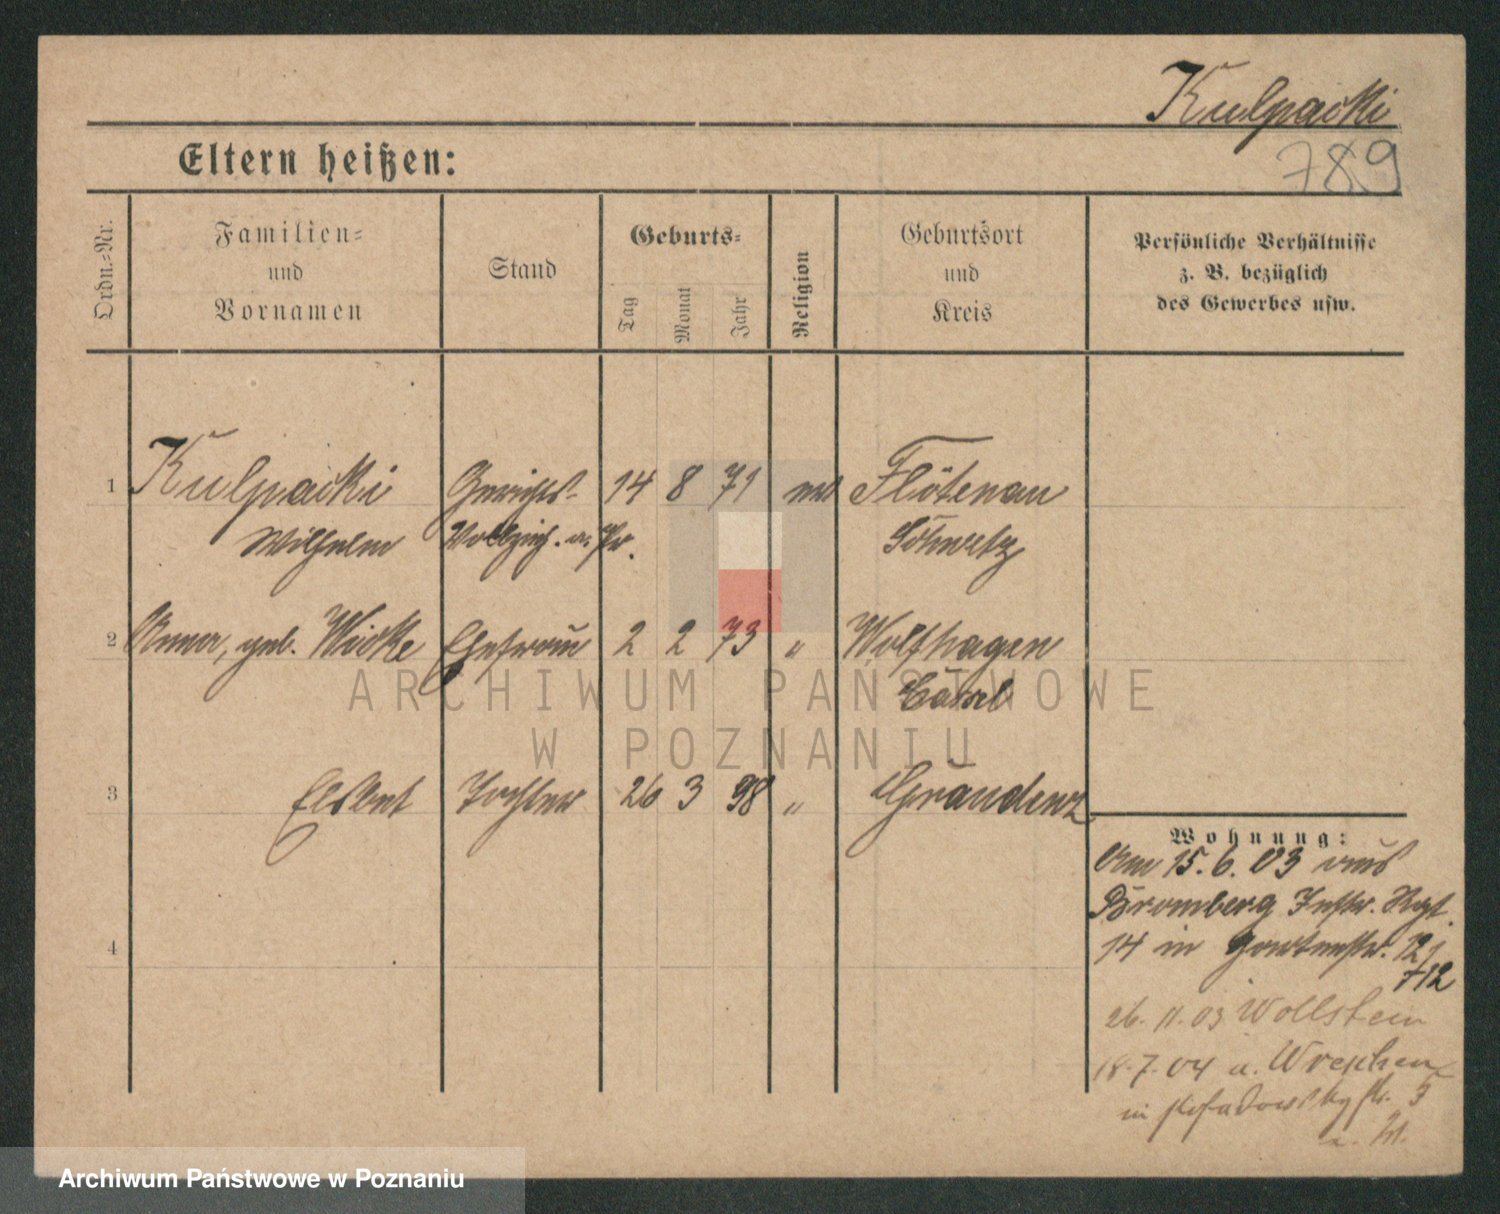 Kulpacki
789
Eltern heißen:
Ordn.-Nr.
Familien-
und
Vornamen
Stand
Geburts-
Tag
Monat
Jahr
Religion
Geburtsort
und
Kreis
Persönliche Verhältnisse
z. B. bezüglich
des Gewerbes usw.
1 Kulpacki Gerichts- 14 8 71 Flötenau
Wilhelm Vollzieh. a. Pr. Schwetz
2 Anna, geb. Wicke Ehefrau 2 2 73 " Wolfhagen
Cassel
3 Elsbet Tochter 26 3 98 " Graudenz
4
Wohnung:
Am 15.6.03 aus
Bromberg Inftr. Rgt.
14 in Gartenstr. 12
26.11.03 Wollstein
18.7.04 u. Wreschen
in 3
ARCHIWUM PAŃSTWOWE
W POZNANIU
Archiwum Państwowe w Poznaniu